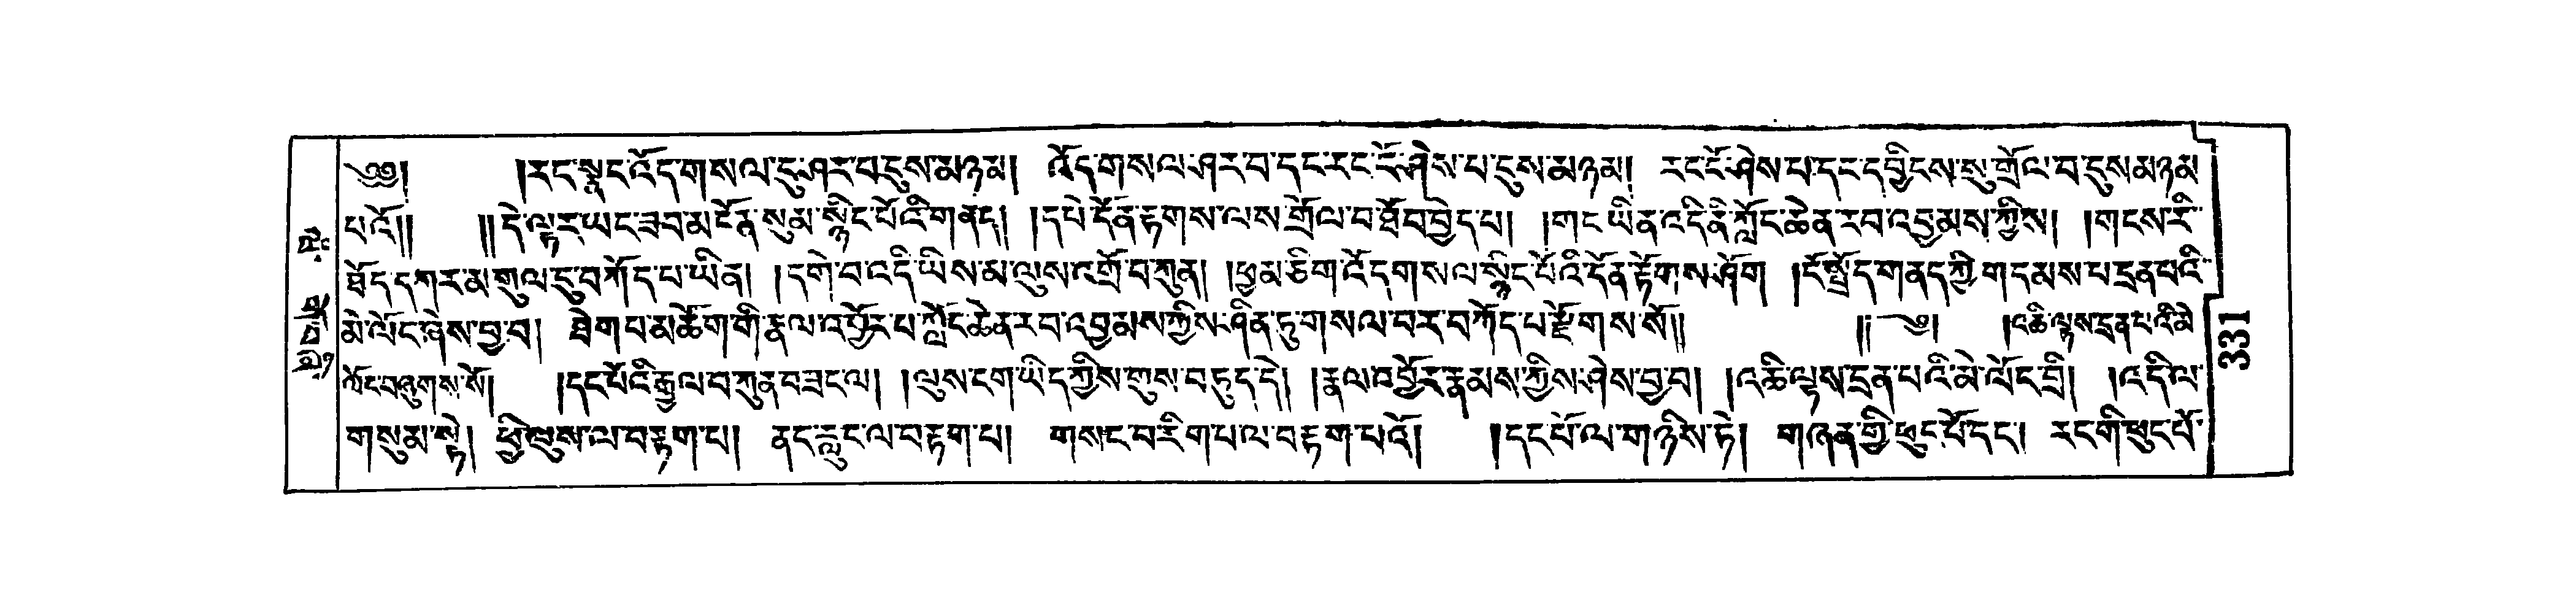 ༄༅། །རང་སྣང་འོད་གསལ་དུ་ཤར་བ་དུས་མཉམ། འོད་གསལ་ཤར་བ་དང་རང་ངོ་ཤེས་པ་དུས་མཉམ། རང་ངོ་ཤེས་པ་དང་དབྱིངས་སུ་གྲོལ་བ་དུས་མཉམ
པའོ།། །།དེ་ལྟར་ཡང་ཟབ་མ་ངོ་ནི་སུམ་སྙིང་པོའི་གནད། །དཔེ་དོན་རྟགས་ལས་གྲོལ་བ་ཐོབ་བྱེད་པ། །གང་ཡིན་འདི་ནི་ཀློང་ཆེན་རབ་འབྱམས་ཀྱིས། །གངས་རི་
ཐོད་དཀར་མགུལ་དུ་བཀོད་པ་ཡིན། །དགེ་བ་འདི་ཡིས་མ་ལུས་འགྲོ་བ་ཀུན། །ཕྱམ་ཅིག་འོད་གསལ་སྙིང་པོའི་དོན་རྟོགས་ཤོག །ངོ་སྤྲོད་གནད་ཀྱི་གདམས་པ་དྲན་པའི་
མེ་ལོང་ཞེས་བྱ་བ། ཐེག་པ་མཆོག་གི་རྣལ་འབྱོར་པ་ཀློང་ཆེན་རབ་འབྱམས་ཀྱིས་ཤིན་ཏུ་གསལ་བར་བཀོད་པ་རྫོགས་སོ།། །། ༄། །འཆི་ལྟས་དྲན་པའི་མེ
ལོང་བཞུགས་སོ། །དང་པོའི་རྒྱལ་བ་ཀུན་བཟང་ལ། །ལུས་ངག་ཡིད་ཀྱིས་གུས་བཏུད་དེ། །རྣལ་འབྱོར་རྣམས་ཀྱིས་ཤེས་བྱ་བ། །འཆི་ལྟས་དྲན་པའི་མེ་ལོང་བྲི། །འདི་ལ་
གསུམ་སྟེ། ཕྱི་ལུས་ལ་བརྟག་པ། ནང་རླུང་ལ་བརྟག་པ། གསང་བ་རིག་པ་ལ་བརྟག་པའོ། །དང་པོ་ལ་གཉིས་ཏེ། གཞན་གྱི་ཕུང་པོ་དང་། རང་གི་ཕུང་པོ་